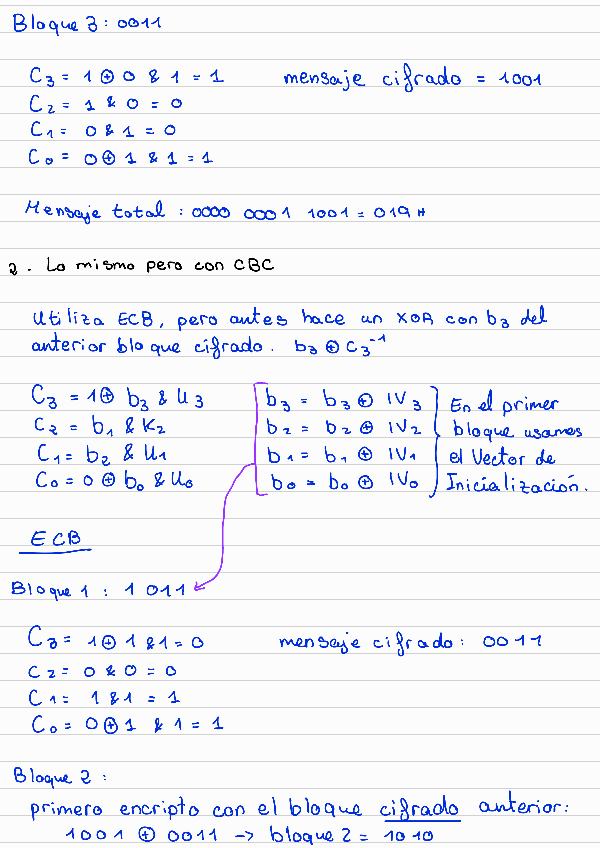 Bloque 3: 0011
C₃ = 1 ⊕ 0 & 1 = 1 mensaje cifrado = 1001
C₂ = 1 & 0 = 0
C₁ = 0 & 1 = 0
C₀ = 0 ⊕ 1 & 1 = 1
Mensaje total : 0000 0001 1001 = 019 H
2. Lo mismo pero con CBC
Utiliza ECB, pero antes hace un XOR con b₃ del
anterior bloque cifrado. b₃ ⊕ C₃⁻¹
C₃ = 1 ⊕ b₃ & U₃ b₃ = b₃ ⊕ IV₃ En el primer
C₂ = b₁ & K₂ b₂ = b₂ ⊕ IV₂ bloque usamos
C₁ = b₂ & U₁ b₁ = b₁ ⊕ IV₁ el Vector de
C₀ = 0 ⊕ b₀ & U₀ b₀ = b₀ ⊕ IV₀ Inicialización.
ECB
Bloque 1 : 1011
C₃ = 1 ⊕ 1 & 1 = 0 mensaje cifrado: 0011
C₂ = 0 & 0 = 0
C₁ = 1 & 1 = 1
C₀ = 0 ⊕ 1 & 1 = 1
Bloque 2 :
primero encripto con el bloque cifrado anterior:
1001 ⊕ 0011 -> bloque 2 = 1010